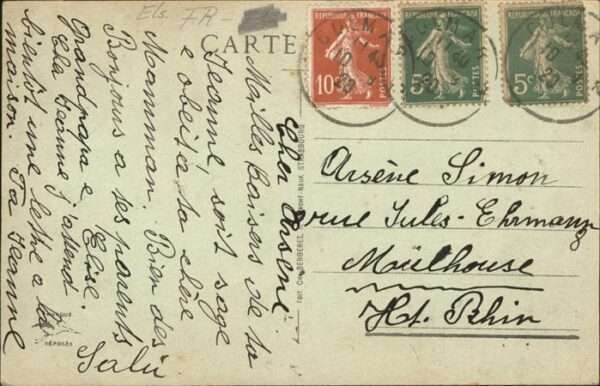 Els. FR-
CARTE
RÉPUBLIQUE FRANÇAISE
10c
POSTES
RÉPUBLIQUE FRANÇAISE
5c
POSTES
RÉPUBLIQUE FRANÇAISE
5c
POSTES
COLMAR
Cher Arsène.
Milles baisers de ta
Jeanne, soit sage
e obeis a ta chère
Mamman. Bien des
Bonjours a tes parents
Grandpapa e Elise.
Ela Jeanne j'attend
bientôt une lethe e la
maison. Ta Jeanne
Salü
Arsène Simon
rue Jules-Ehrmann
Moülhouse
Ht. Rhin
STRASBOURG
DÉPOSÉS